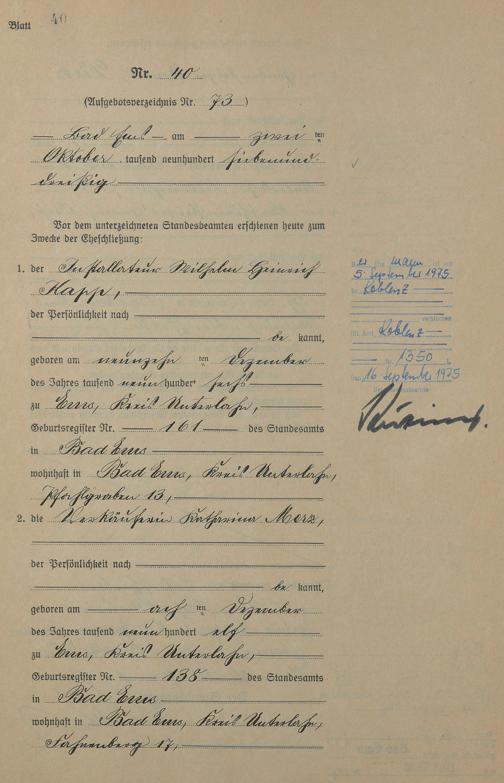 Blatt 40
Nr. 40
(Aufgebotsverzeichnis Nr. 73)
Bad Ems am zwei ten
Oktober tausend neunhundert siebenund-
dreißig
Vor dem unterzeichneten Standesbeamten erschienen heute zum
Zwecke der Eheschließung:
1. der Installateur Wilhelm Heinrich
Happ,
der Persönlichkeit nach
be kannt,
geboren am neunzehn ten Dezember
des Jahres tausend neun hundert sechs
zu Ems, Kreis Unterlahn,
Geburtsregister Nr. 161 des Standesamts
in Bad Ems
wohnhaft in Bad Ems, Kreis Unterlahn,
Pfahlgraben 13,
2. die Verkäuferin Katharina Merz,
der Persönlichkeit nach
be kannt,
geboren am ach ten Dezember
des Jahres tausend neun hundert elf
zu Ems, Kreis Unterlahn,
Geburtsregister Nr. 138 des Standesamts
in Bad Ems
wohnhaft in Bad Ems, Kreis Unterlahn,
Fahnenberg 17,
Mann
5. September 1975
Koblenz
verstorben
Koblenz
1350
16 September 1975